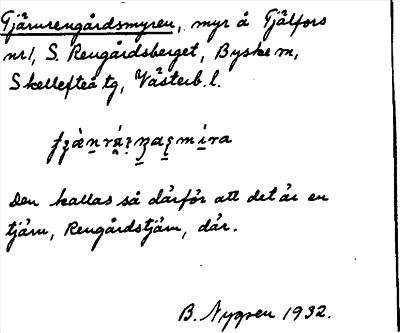 Tjärnrengårdsmyren, myr å Fjälfors
nr 1, S. Rengårdsberget, Byske sn,
Skellefteå tg, Västerb. l.
Den kallas så därför att det är en
tjärn, Rengårdstjärn, där.
B. Nygren 1932.